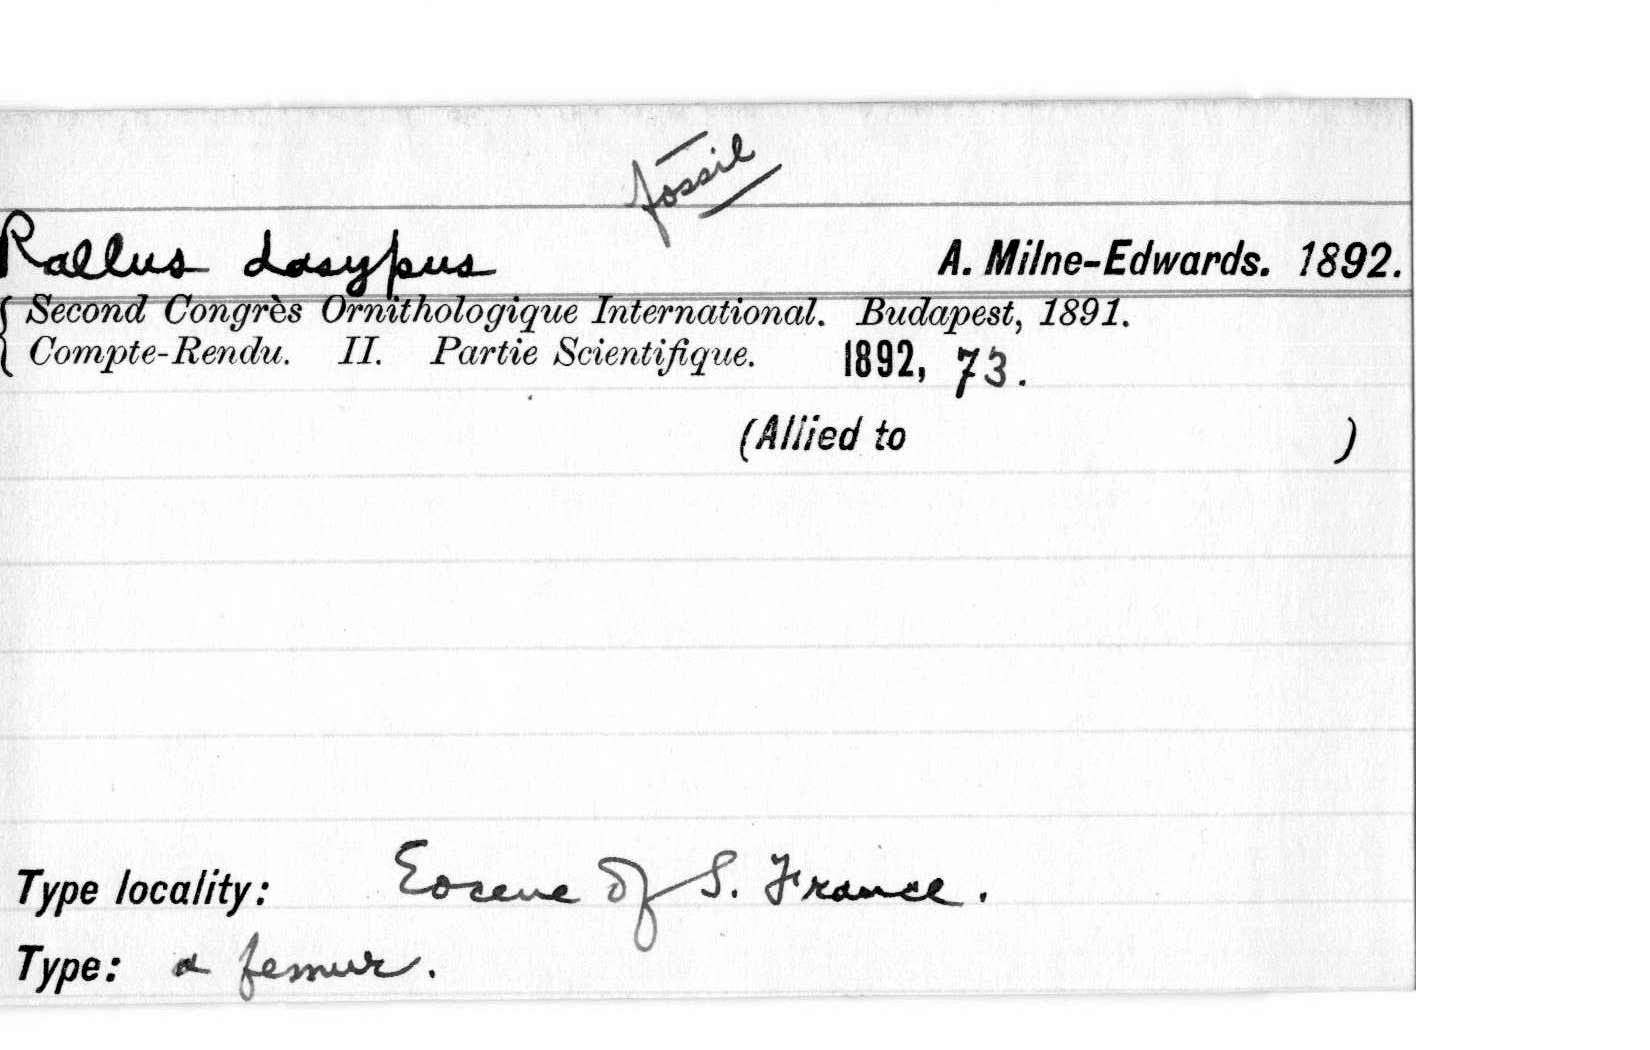 fossil
Rallus dasypus A. Milne-Edwards. 1892.
Second Congrès Ornithologique International. Budapest, 1891.
Compte-Rendu. II. Partie Scientifique. 1892, 73.
(Allied to )
Type locality: Eocene of S. France.
Type: a femur.